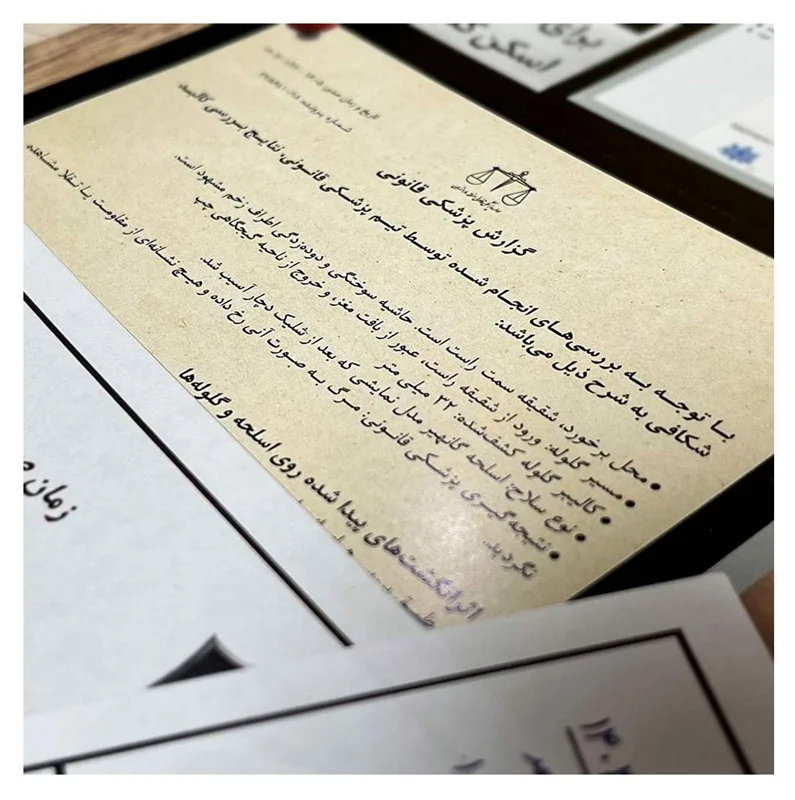 برای
اسکن ک
گزارش پزشکی قانونی
با توجه به بررسی‌های انجام شده توسط تیم پزشکی قانونی، نتایج بررسی کالبد
شکافی به شرح ذیل می‌باشد:
محل برخورد، شقیقه سمت راست است، حاشیه سوختگی و دوده‌زدگی اطراف زخم مشهود است.
مسیر گلوله: ورود از شقیقه راست، عبور از بافت مغز، و خروج از ناحیه گیجگاهی چپ
کالیبر گلوله کشف‌شده: ۳۲ میلی متر
نوع سلاح: اسلحه گانهیر مدل نمایشی که بعد از شلیک دچار آسیب شد.
نتیجه گیری پزشکی قانونی: مرگ به صورت آنی رخ داده و هیچ نشانه‌ای از مقاومت یا تقلا مشاهده
نگردید.
اثر انگشت‌های پیدا شده روی اسلحه و گلوله‌ها
زمان